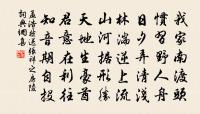 我家南渡頭
慣習野人舟
日夕弄清淺
林湍逆上流
山河據形勝
天地生豪酋
君意在利往
知音期自投
孟浩然送張祥之房陵
詞典網集